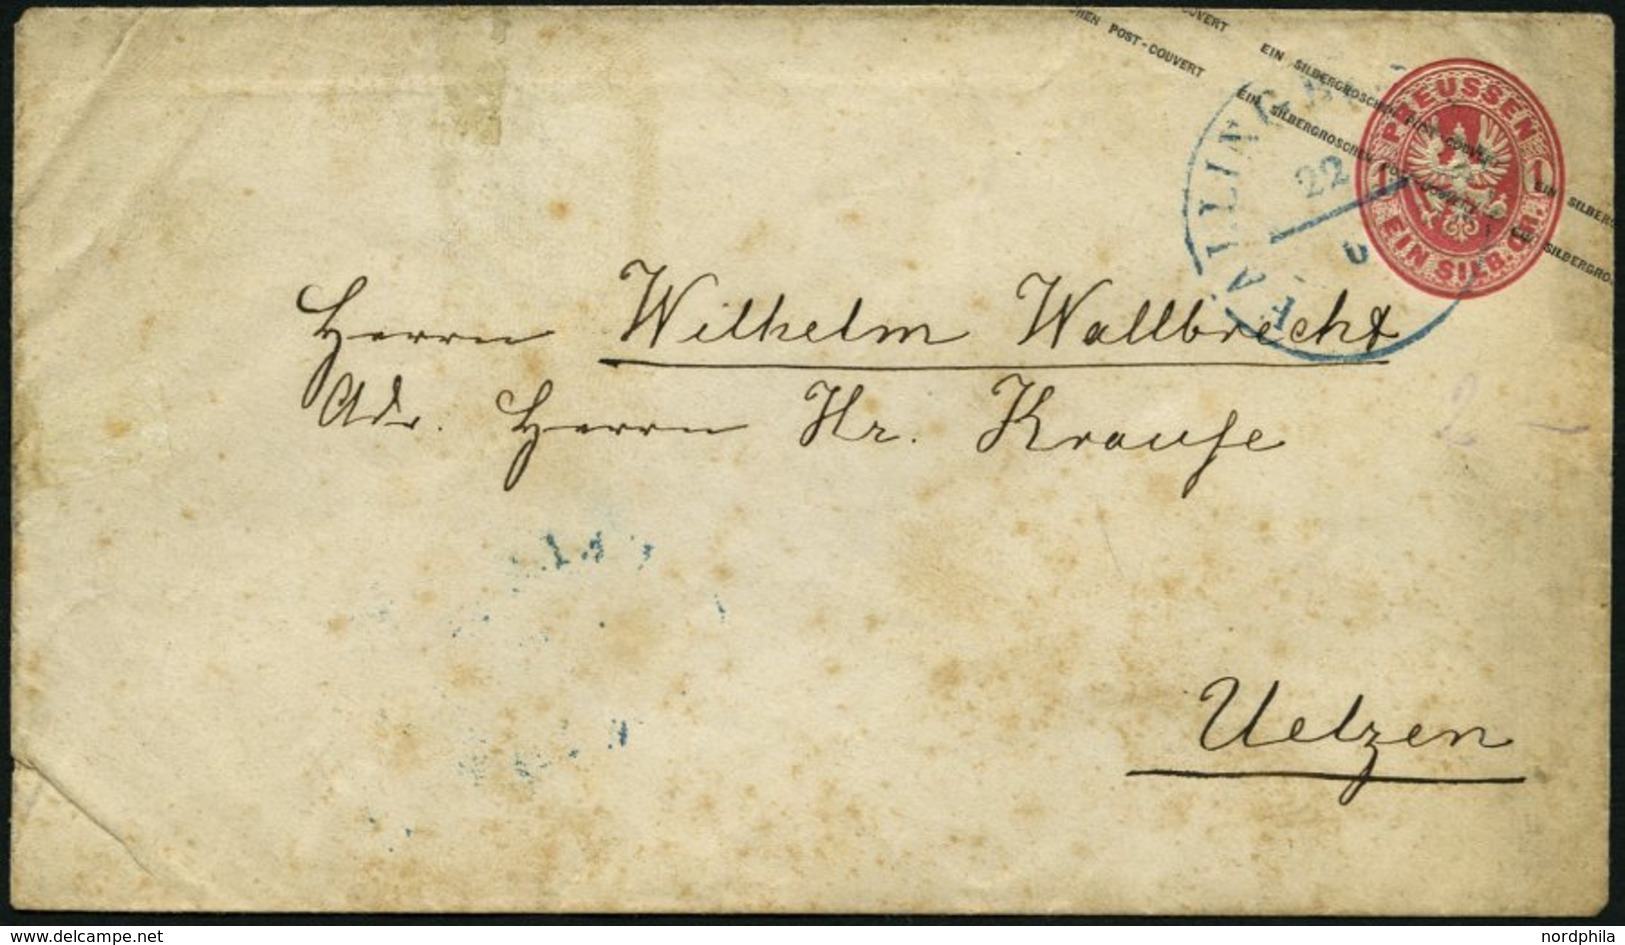 HEN POST-COUVERT
OUVERT
EIN SILBERGROSCHEN POST-COUVERT
EIN SILBERGROSCHEN POST-COUVERT
EIN SILBERG
EIN SILBERGRO
PREUSSEN
1 1
EIN SILB. GR.
22
Herrn Wilhelm Wallbrecht
Adr. Herrn Hr. Krause
2 –
Uelzen
www.delcampe.net
nordphila